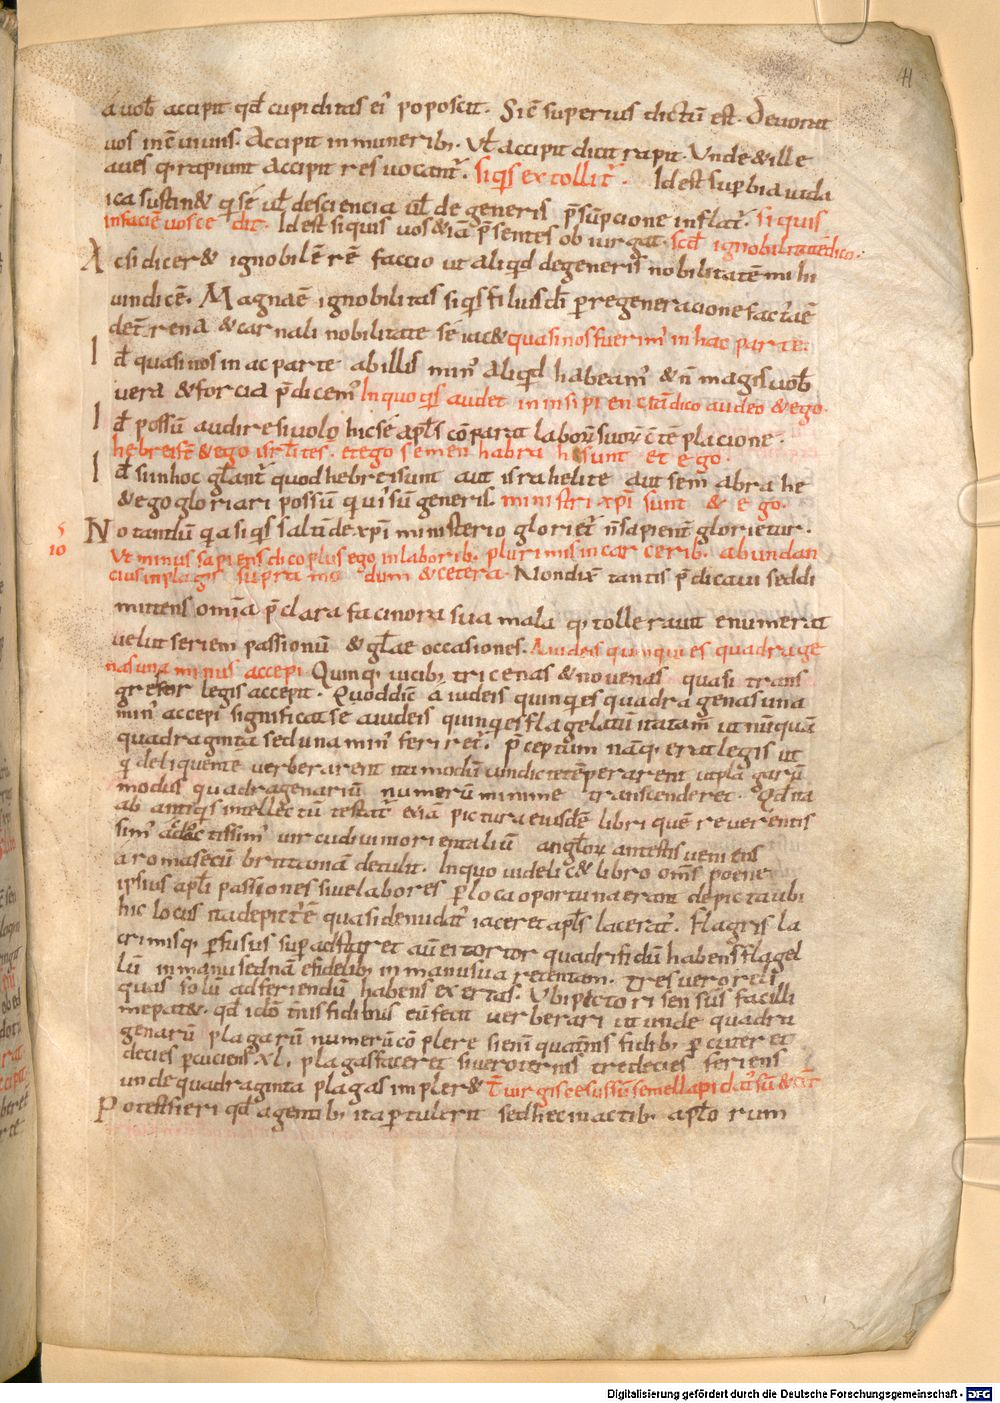 41
a uob̄ accipit qđ cupiditas ei᾽ poposcit. Sic̄ superius dictū est. Deuorat
uos in eūiuiis. Accipit in munerib;. Vł accipit dicit rapit. Vnde & ille
aues q; rapiunt accipit res uocant᾽. si q̄s extollit᾽. Id est superbia uida
ica sustin& q; sē uł desciencia uł de generis p̄sūpcione inflat᾽. si quis
in faciē uos ce dit. Id est si quis uos & iā p̄sentes obiurgat. scđ ignobilitatē dico.
Ac si dicer& ignobilē rē faccio ut aliqđ degeneris nobilitatē mihi
uindicē. Magna ē ignobilitas si q̄s filius dī p̄ regeneracione fact᾽ ē
det̄rena & carnali nobilitate sē iac& quasi nos fuerim᾽ in hac parte.
Iđ quasi nos in ac parte ab illis min᾽ aliqđ habeam᾽ & n̄ magis uob̄
uera & forcia p̄dicem᾽ In quo q̄s audet in insipientia dico audeo & ego.
Iđ possū audire si uolo hic sē apłs cōparat laborū suorū c̄tēplacione.
hebrei s̄t & ego isrł ites. et ego semen habra h̄ sunt et ego.
Iđ si in hoc głant᾽ quod hebrei sunt aut israhelite aut sem̄ abrahe
& ego gloriari possū qui sū generis. ministri xp̄i sunt & ego.
Notandū q;a si q̄s saltī de xp̄i ministerio gloriet᾽ n̄ sapient̄ glorietur.
s
10
Vt minus sapiens dico plus ego in laborib;. plurimis in carcerib;. abundan
cius in plagis supra mo dum & cetera. Non dix̄ tantis p̄dicaui sed di
mittens om̄ia p̄clara facinora sua mala q; tollerauit enumerat
uelut seriem passionū & głae occasiones. A iudeis quinquies quadrage
nas una minus accepi Quinq; uicib; tricenas & nouenas quasi trans
gressor legis accepit. Quod dic̄ a iudeis quinquies quadragenas una
min᾽ accepi significat se a iudeis quinquies flagelatū ita tam̄ ut nūquā
quadraginta sed una min᾽ feriret᾽. p̄ceptum nāq; erat legis ut
q; deliquente uerberarent ita modū uindicte tēperarent ut plagarū
modus quadragenariū numerū minime transcenderet. Qđ ita
ab antiq̄s intellectū testat᾽ etiā pictura eiusdē libri quē reuerentis
sim᾽ ac doctissim᾽ uir cudui morientaliū anglorū antestis ueniens
a roma secū brittaniā detulit. In quo uidelic& libro om̄s poene
ipsius apłi passiones siue labores p̄ loca oportuna erant depicta ubi
hic locus ita depict᾽ ē quasi denudat᾽ iaceret apłs lacerat᾽. flagris la
crimisq; p̄fusus sup̄ adstaret aū ei tortor quadrifidū habens flagel
lū in manu sed unā e fidelib; in manu sua retentam. tres uero reli
quas solū ad feriendū habens exertas. Vbi pectori sensus facilli
me pat&. qđ ido t̄nis fidibus eū fecit uerberari ut inde quadra
genarū plagarū numerū cōplere si enī quat̄nis fidib; p̄cuteret
decies p̄cuciens XL. plagas faceret si uero ternis tredecies feriens
undequadraginta plagas impler& T̄ uirgis cesus sū semel lapidat᾽ sū & cet̄
Potest fieri qđ a gentib; ita p̄tulerit sed hec in actib; apłorum
Digitalisierung gefördert durch die Deutsche Forschungsgemeinschaft - DFG